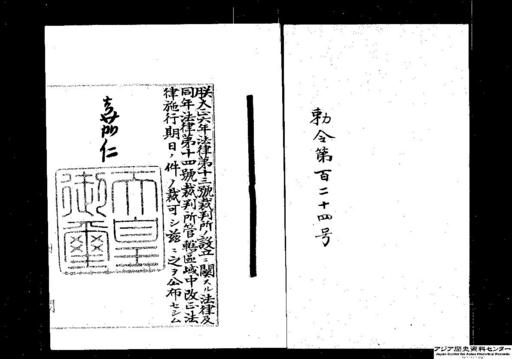 勅令第百二十四号
朕大正六年法律第十三號裁判所ノ設立ニ關スル法律及
同年法律第十四號裁判所管轄區域中改正法
律施行期日ノ件ヲ裁可シ茲ニ之ヲ公布セシム
嘉仁
天皇
御璽
アジア歴史資料センター
Japan Center for Asian Historical Records